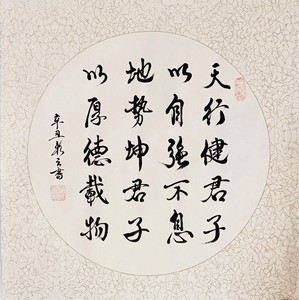 天行健君子
以自强不息
地势坤君子
以厚德载物
辛丑